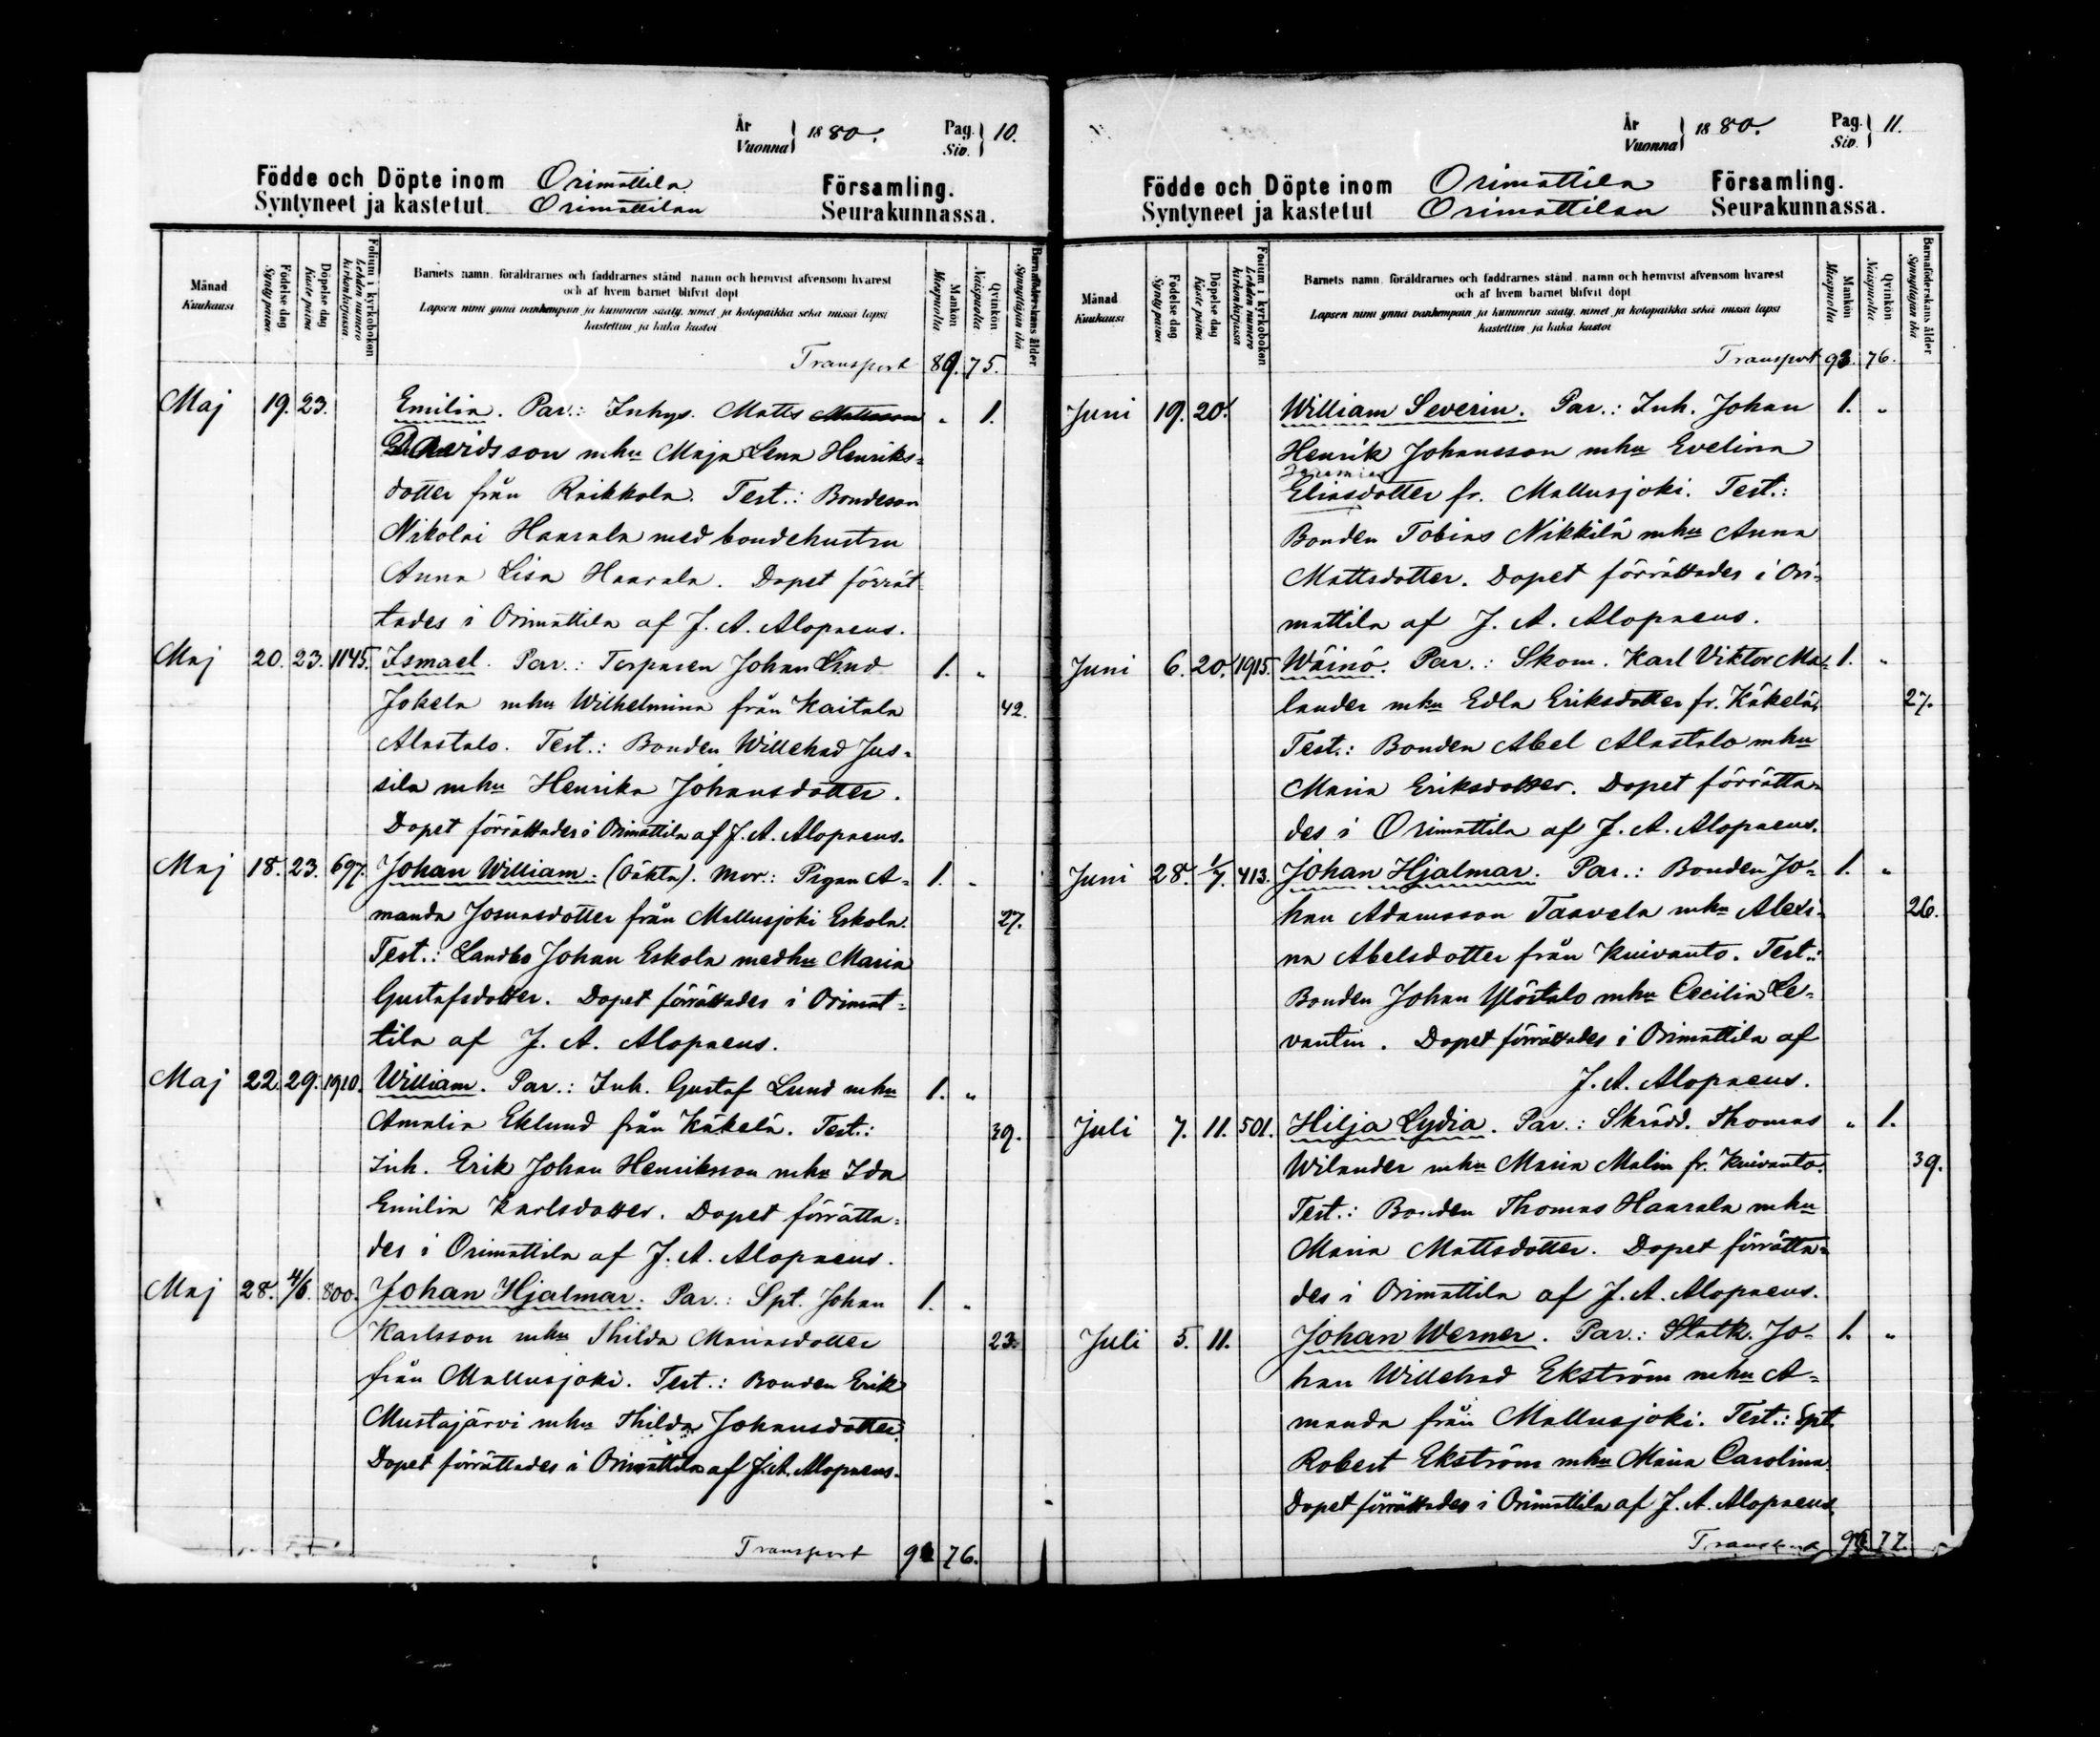 År
Vuonna } 1880. Pag.
Siv. } 10.
Födde och Döpte inom Orimattila Församling.
Syntyneet ja kastetut Orimattilan Seurakunnassa.
Månad
Kuukausi
Födelse dag
Syntypäivä
Döpelse dag
Kastepäivä
Folium i kyrkoboken
Lehden numero kirkonkirjassa
Barnets namn, föräldrarnes och faddrarnes stånd, namn och hemvist äfvensom hvarest
och af hvem barnet blifvit döpt
Lapsen nimi ynnä vanhempain ja kummein sääty, nimet ja kotopaikka sekä missä lapsi
kastettiin ja kuka kastoi
Mankön
Miespuolia
Qvinkön
Naispuolia
Barnaföderskans ålder
Synnyttäjän ikä
Transport 89. 75.
Maj 19. 23. Emilia. Par.: Inhys. Matts Mattsson " 1.
Davidsson mhu Maja Lena Henriks=
dotter från Raikkola. Test.: Bondeson
Nikolai Haarala med bondehustru
Anna Lisa Haarala. Dopet förrät
tades i Orimattila af J. A. Alopaeus.
Maj 20. 23. 1145. Ismael. Par.: Torparen Johan Lind 1. "
Jokela mhu Wilhelmina från Kaitala 42.
Alastalo. Test.: Bonden Willehad Jus=
sila mhu Henrika Johansdotter.
Dopet förrättades i Orimattila af J. A. Alopaeus.
Maj 18. 23. 697. Johan William. (Oäkta). Mor.: Pigan A= 1. "
manda Josuasdotter från Mallusjoki Eskola. 27.
Test.: Landbo Johan Eskola medhu Maria
Gustafsdotter. Dopet förrättades i Orimat=
tila af J. A. Alopaeus.
Maj 22. 29. 1910. William. Par.: Inh. Gustaf Lund mhu 1. "
Amalia Eklund från Käkelä. Test.: 39.
Inh. Erik Johan Henriksson mhu Ida
Emilia Karlsdotter. Dopet förrätta=
des i Orimattila af J. A. Alopaeus.
Maj 28. 4/6. 800. Johan Hjalmar. Par.: Spt. Johan 1. "
Karlsson mhu Thilda Mariasdotter 23.
från Mallusjoki. Test.: Bonden Erik
Mustajärvi mhu Thilda Johansdotter.
Dopet förrättades i Orimattila af J. A. Alopaeus.
Transport 76.
År
Vuonna } 1880. Pag.
Siv. } 11.
Födde och Döpte inom Orimattila Församling.
Syntyneet ja kastetut Orimattilan Seurakunnassa.
Månad
Kuukausi
Födelse dag
Syntypäivä
Döpelse dag
Kastepäivä
Folium i kyrkoboken
Lehden numero kirkonkirjassa
Barnets namn, föräldrarnes och faddrarnes stånd, namn och hemvist äfvensom hvarest
och af hvem barnet blifvit döpt
Lapsen nimi ynnä vanhempain ja kummein sääty, nimet ja kotopaikka sekä missä lapsi
kastettiin ja kuka kastoi
Mankön
Miespuolia
Qvinkön
Naispuolia
Barnaföderskans ålder
Synnyttäjän ikä
Transport 93. 76.
Juni 19. 20. William Severin. Par.: Inh. Johan 1. "
Henrik Johansson mhu Evelina
Jeremias
Eliasdotter fr. Mallusjoki. Test.:
Bonden Tobias Nikkilä mhu Anna
Mattsdotter. Dopet förrättades i Ori=
mattila af J. A. Alopaeus.
Juni 6. 20. 1915. Wäinö. Par.: Skom. Karl Viktor Me= 1. "
lander mhu Edla Eriksdotter fr. Käkelä. 27.
Test.: Bonden Abel Alastalo mhu
Maria Eriksdotter. Dopet förrätta=
des i Orimattila af J. A. Alopaeus.
Juni 28. 1/7. 413. Johan Hjalmar. Par.: Bonden Jo= 1. "
han Adamsson Taavela mhu Alexi= 26.
na Abelsdotter från Kuivanto. Test.:
Bonden Johan Ylöstalo mhu Cecilia Le=
vantin. Dopet förrättades i Orimattila af
J. A. Alopaeus.
Juli 7. 11. 501. Hilja Lydia. Par.: Skrädd. Thomas " 1.
Wilander mhu Maria Malin fr. Kuivanto. 39.
Test.: Bonden Thomas Haarala mhu
Maria Mattsdotter. Dopet förrätta=
des i Orimattila af J. A. Alopaeus.
Juli 5. 11. Johan Werner. Par.: Statk. Jo= 1. "
han Willehad Ekström mhu A=
manda från Mallusjoki. Test.: Spt.
Robert Ekström mhu Maria Carolina.
Dopet förrättades i Orimattila af J. A. Alopaeus.
Transport 77.